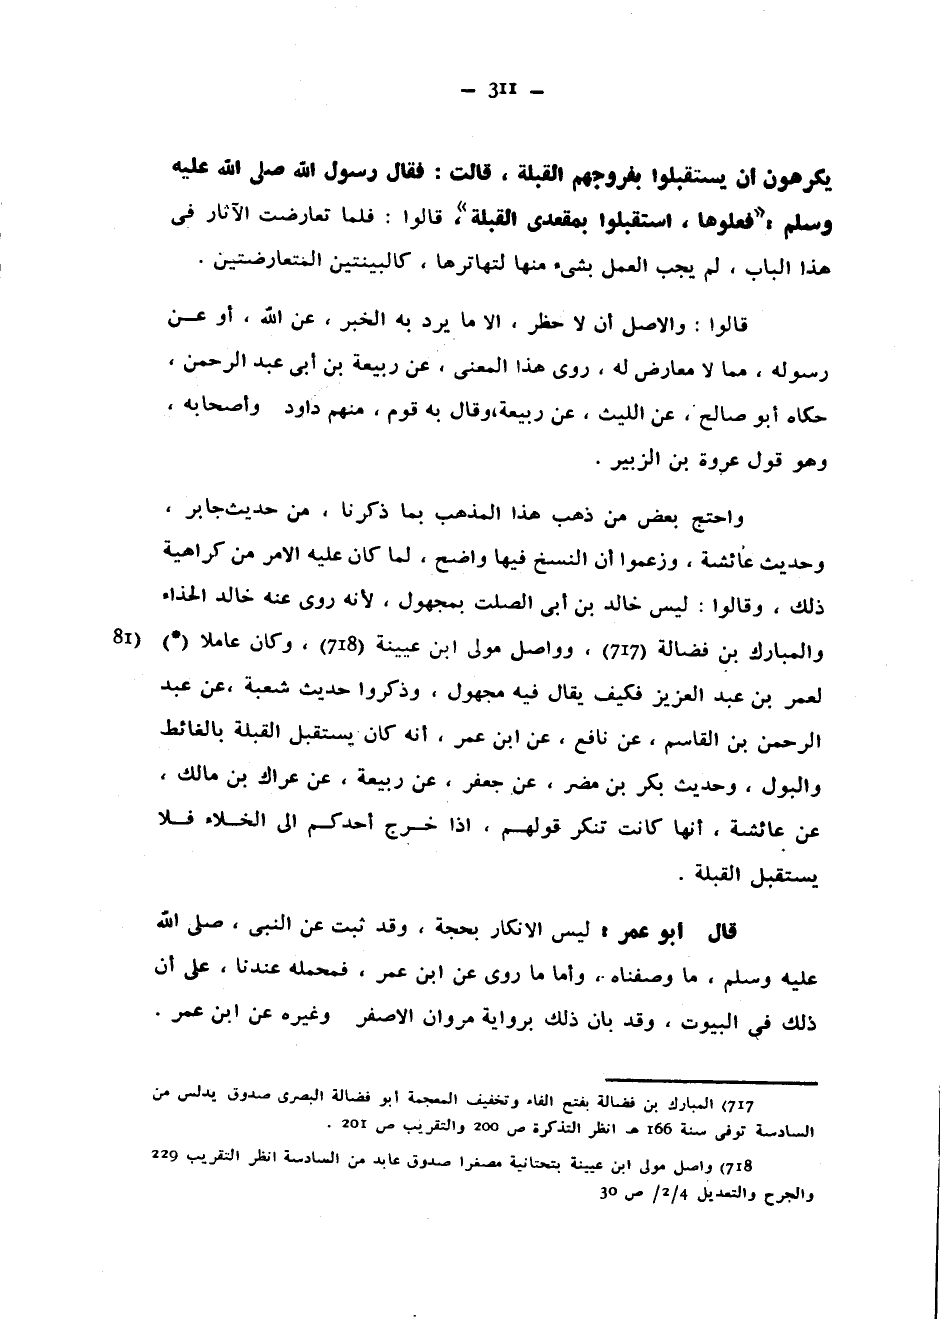 — 311 —
يكرهون ان يستقبلوا بفروجهم القبلة ، قالت : فقال رسول الله صلى الله عليه
وسلم : «فعلوها ، استقبلوا بمقعدى القبلة» ، قالوا : فلما تعارضت الآثار فى
هذا الباب ، لم يجب العمل بشىء منها لتهاترها ، كالبينتين المتعارضتين .
قالوا : والاصل أن لا حظر ، الا ما يرد به الخبر ، عن الله ، أو عـن
رسوله ، مما لا معارض له ، روى هذا المعنى ، عن ربيعة بن أبى عبد الرحمن ،
حكاه أبو صالح ، عن الليث ، عن ربيعة،وقال به قوم ، منهم داود وأصحابه ،
وهو قول عروة بن الزبير .
واحتج بعض من ذهب هذا المذهب بما ذكرنا ، من حديث جابر ،
وحديث عائشة ، وزعموا أن النسخ فيها واضح ، لما كان عليه الامر من كراهية
ذلك ، وقالوا : ليس خالد بن أبى الصلت بمجهول ، لأنه روى عنه خالد الحذاء
والمبارك بن فضالة (717) ، وواصل مولى ابن عيينة (718) ، وكان عاملا (*) (81
لعمر بن عبد العزيز فكيف يقال فيه مجهول ، وذكروا حديث شعبة ،عن عبد
الرحمن بن القاسم ، عن نافع ، عن ابن عمر ، أنه كان يستقبل القبلة بالغائط
والبول ، وحديث بكر بن مضر ، عن جعفر ، عن ربيعة ، عن عراك بن مالك ،
عن عائشة ، أنها كانت تنكر قولهـم ، اذا خـرج أحدكـم الى الخـلاء فـلا
يستقبل القبلة .
قال أبو عمر : ليس الانكار بحجة ، وقد ثبت عن النبى ، صلى الله
عليه وسلم ، ما وصفناه ، وأما ما روى عن ابن عمر ، فمحمله عندنا ، على أن
ذلك في البيوت ، وقد بان ذلك برواية مروان الاصفر وغيره عن ابن عمر .
717) المبارك بن فضالة بفتح الفاء وتخفيف المعجمة أبو فضالة البصرى صدوق يدلس من
السادسة توفى سنة 166 هـ انظر التذكرة ص 200 والتقريب ص 201 .
718) واصل مولى ابن عيينة بتحتانية مصغرا صدوق عابد من السادسة انظر التقريب 229
والجرح والتعديل 4/2/ ص 30